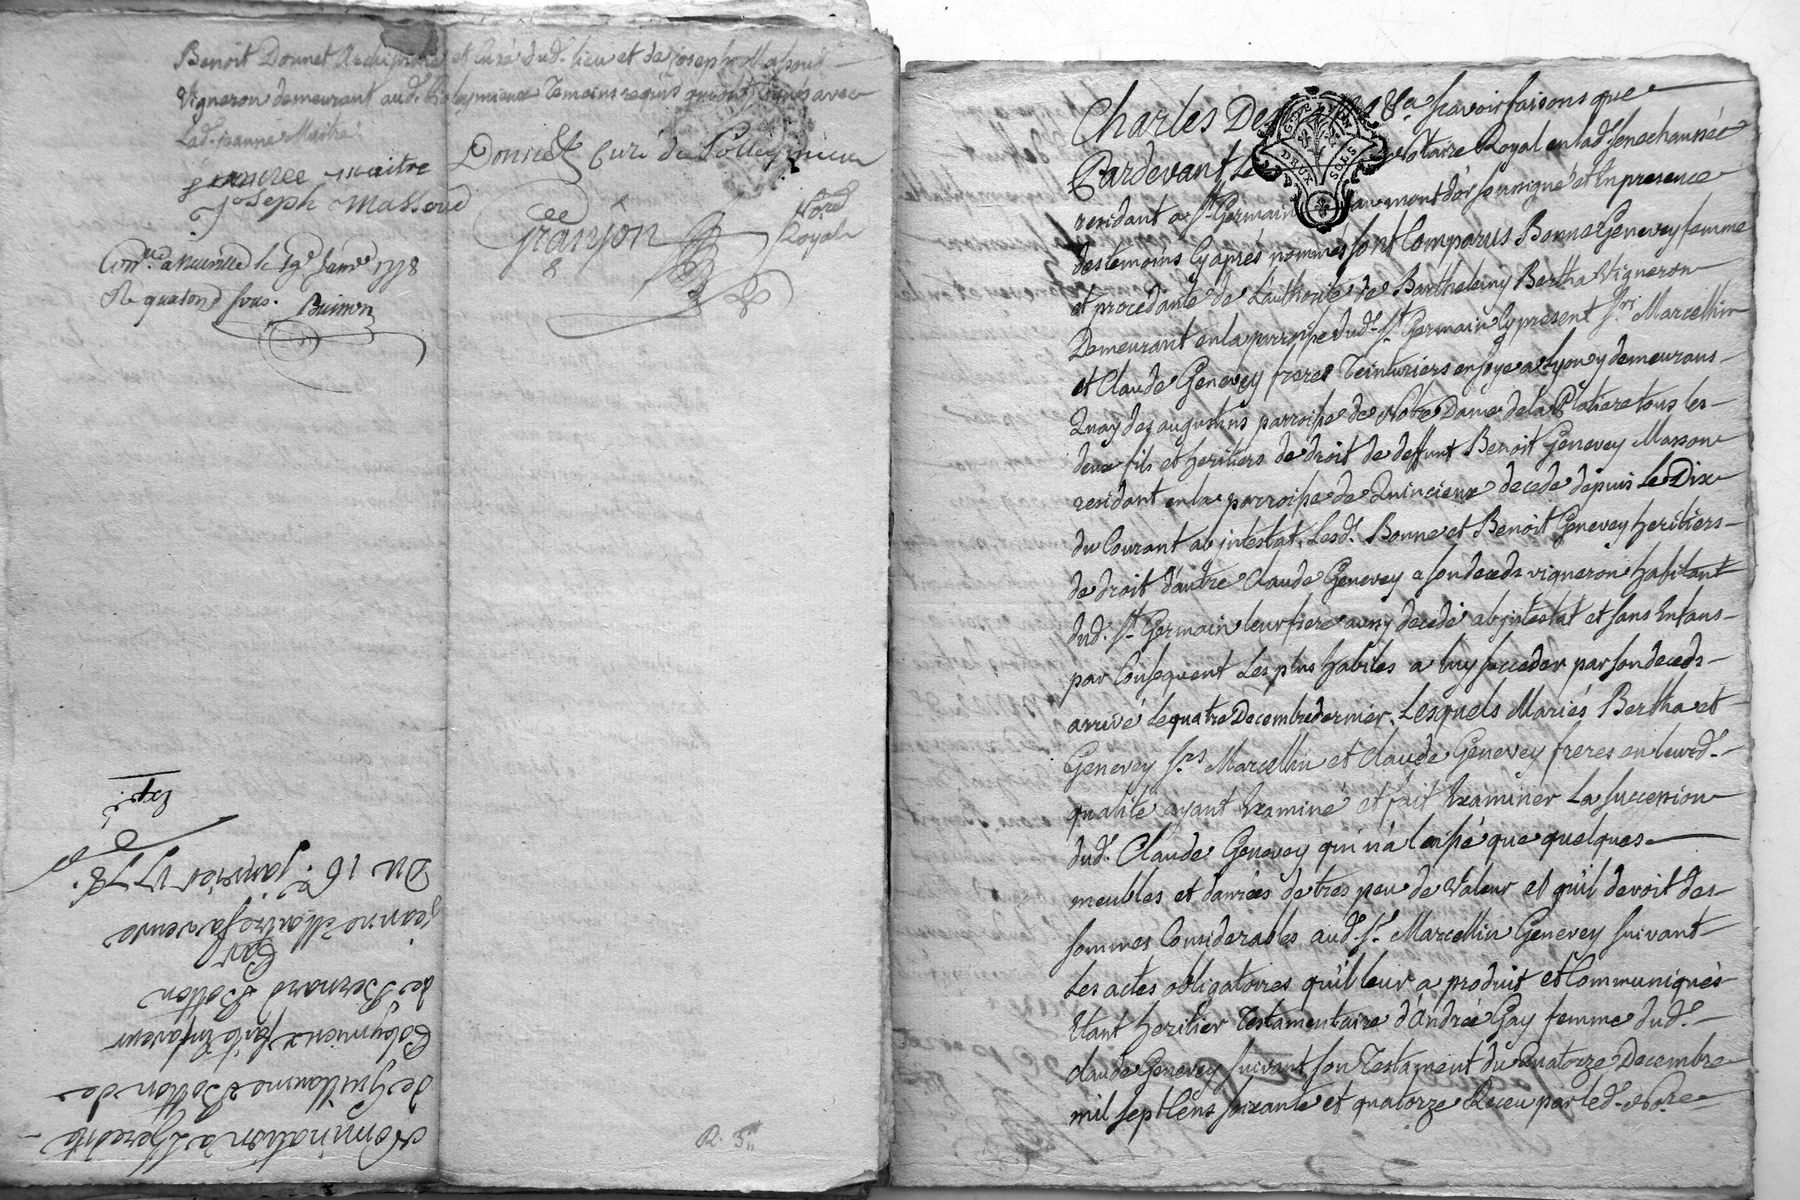 Benoit Donnet Archiprêtre et Curé dud. lieu et de joseph
Vigneron demeurant aud. Poleymieux Temoins requis qui ont signés avec
Lad. jeanne Maitre
jeanne maitre
Joseph Massoud
Donnet Curé de Polleymieux
Granjon
No.re Royal
Con.lé a neuville le 19e janv.er 1778
R. quatorze sous. Buisson
Nomination d'heredité
de Guillaume Botton de
Poleymieux faite en faveur
de Bernard Botton
Par
jeanne Maitre sa veuve
Du 16.e janvier 1778.
Exp.é
R. 5
Charles De sca.r scavoir faisons que
Pardevant Le Notaire Royal en lad. senechaussée
residant a St. Germain au mont d'or soussigné et En presence
des temoins Cy après nommés sont Comparus Bonne Genevey femme
et procedante de L'authorité de Barthelemy Bertha Vigneron
Demeurant en la parroisse dud. St. Germain Cy present Sr. Marcellin
et Claude Genevey freres Teinturiers en soye a Lyon y demeurans
Quay des augustins parroisse de Notre Dame de la Platiere tous les
deux fils et heritiers de droit de deffunt Benoit Genevey Masson
residant en la parroisse de Quincieux decedé depuis Le Dix
du Courant ab intestat, Lesd. Bonne et Benoit Genevey heritiers
de droit d'autre Claude Genevey a son deceds vigneron habitant
dud. St. Germain leur frere aussy decedé ab intestat et sans Enfans
par Consequent Les plus habiles a luy succeder par son deceds
arrivé Le quatre Decembre dernier, Lesquels Mariés Bertha et
Genevey Srs. Marcellin et Claude Genevey freres en leurd.
qualité ayant Examiné et fait Examiner La succession
dud. Claude Genevey qui n'a laissé que quelques
meubles et danrées de tres peu de Valeur et qu'il devoit des
sommes Considerables aud. Sr. Marcellin Genevey suivant
Les actes obligatoires qu'il leur a produit et Communiqués
Etant heritier Testamentaire d'Andrée Gay femme dud.
Claude Genevey suivant son Testament du Quatorze Decembre
mil sept Cens soixante et quatorze Receu par led. No.re